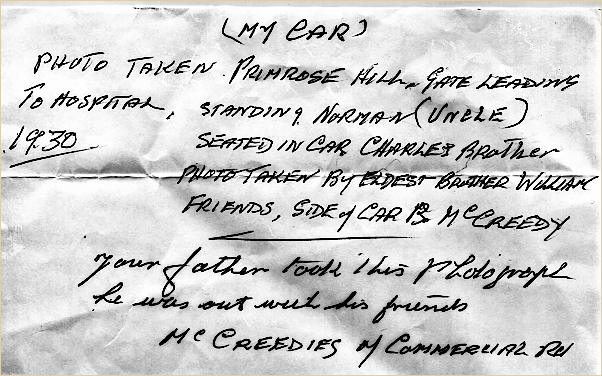 (MY CAR)
PHOTO TAKEN PRIMROSE HILL, GATE LEADING
TO HOSPITAL, STANDING NORMAN (UNCLE)
1930 SEATED IN CAR CHARLES BROTHER
PHOTO TAKEN BY ELDEST BROTHER WILLIAM
FRIENDS, SIDE of CAR McCREEDY
your father took this Photograph
he was out with his friends
McCREEDIES of COMMERCIAL Rd